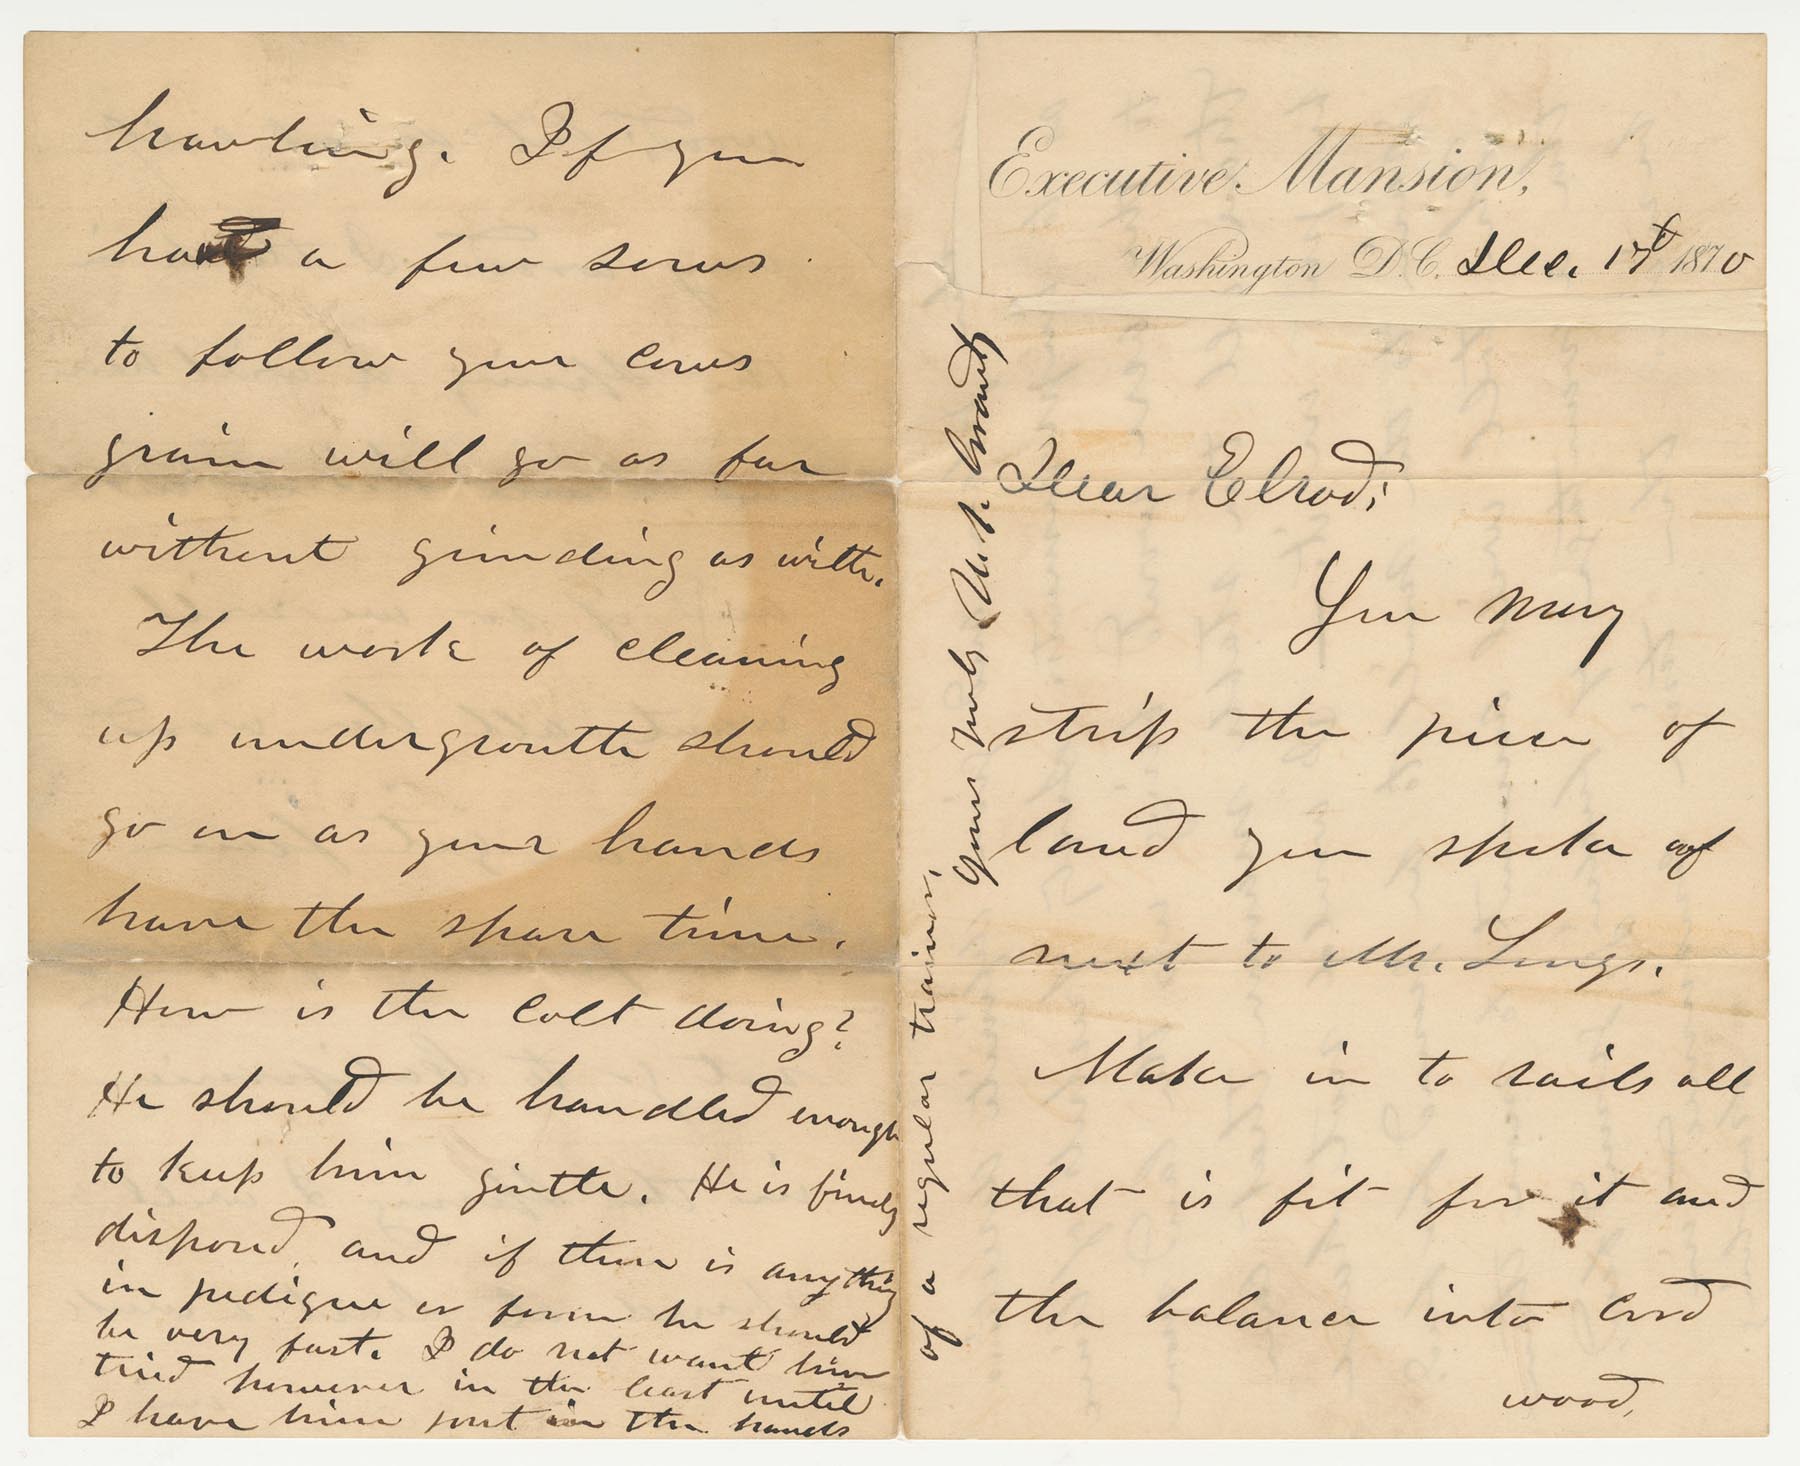 Executive Mansion,
Washington D.C. Dec. 17th 1870
Dear Elrod;
You may
strip the piece of
land you spoke of
next to Mr. Longs.
Make in to rails all
that is fit for it and
the balance into cord
wood,
hawling. If you
have a few sows
to follow your cows
grain will go as far
without grinding as with.
The work of cleaning
up undergrowth should
go on as your hands
have the spare time.
How is the colt doing?
He should be handled enough
to keep him gentle. He is finely
disposed, and if there is anything
in pedigree or form he should
be very fast. I do not want him
tried however in the least until
I have him put in the hands
of a regular trainer.
Yours Truly U. S. Grant